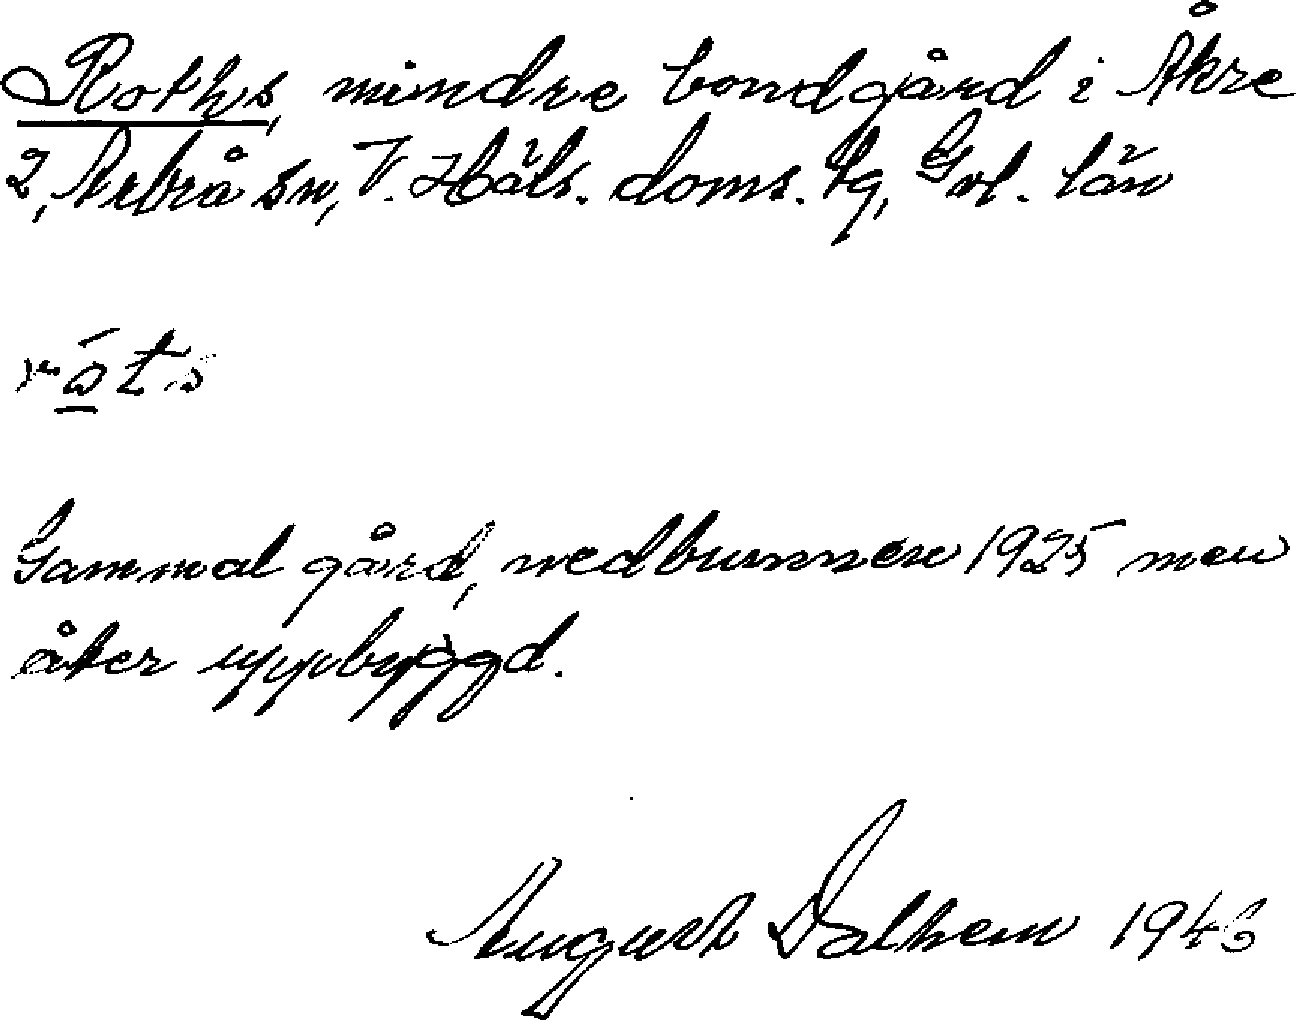 Roths, mindre bondgård i Åkre
2, Arbrå sn, V. Häls. doms. tg, Gvl. län
róts
Gammal gård, nedbrunnen 1925 men
åter uppbyggd.
August Dalhem 1946